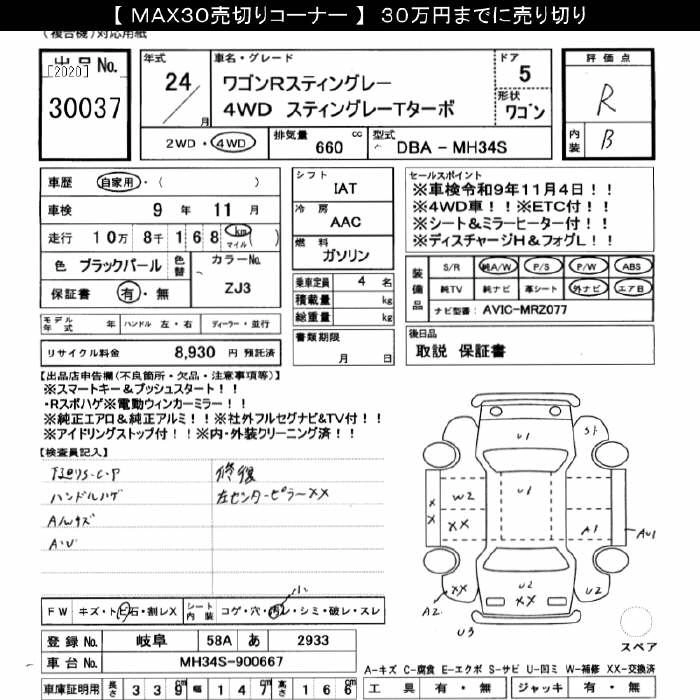 【 MAX30売切りコーナー 】 30万円までに売り切り
(複合機)対応用紙
出品No.
[2020]
30037
年式
24/
月
車名・グレード
ワゴンRスティングレー
4WD スティングレーTターボ
ドア
5
形状
ワゴン
評価点
R
内装
B
2WD・4WD
排気量
660 cc
型式
DBA - MH34S
車歴 自家用・( )
車検 9 年 11 月
走行 10万 8千 168 km マイル ( )
色 ブラックパール
色替
カラーNo.
ZJ3
保証書 有・無
シフト
IAT
冷房
AAC
燃料
ガソリン
乗車定員 4 名
積載量 kg
総重量 kg
書類期限
月 日
セールスポイント
※車検令和9年11月4日!!
※4WD車!!※ETC付!!
※シート&ミラーヒーター付!!
※ディスチャージH&フォグL!!
装備品
S/R 純A/W P/S P/W ABS
純TV 純ナビ 革シート 外ナビ エアB
ナビ型番: AVIC-MRZ077
モデル年式 年 ハンドル 左・右 ディーラー・並行
リサイクル料金 8,930 円 預託済
後日品
取説 保証書
【出品店申告欄(不良箇所・欠品・注意事項等)】
※スマートキー&プッシュスタート!!
・Rスポハゲ※電動ウィンカーミラー!!
※純正エアロ&純正アルミ!!※社外フルセグナビ&TV付!!
※アイドリングストップ付!!※内・外装クリーニング済!!
【検査員記入】
修復
ハンドルハゲ
左センターピラーXX
A/Wキズ
A・U
U1
S1
W2
XX
U1
X
X
A1
AU1
XX
A2
U2
XX
U2
U3
小
FW キズ・ト石・割レX
シート内装 コゲ・穴・汚レ・シミ・破レ・スレ
スペア
登録 No. 岐阜 58A あ 2933
車台 No. MH34S-900667
A-キズ C-腐食 E-エクボ S-サビ U-凹ミ W-補修 XX-交換済
車庫証明用 長さ 339 cm 幅 147 cm 高さ 166 cm
工具 有・無 ジャッキ 有・無